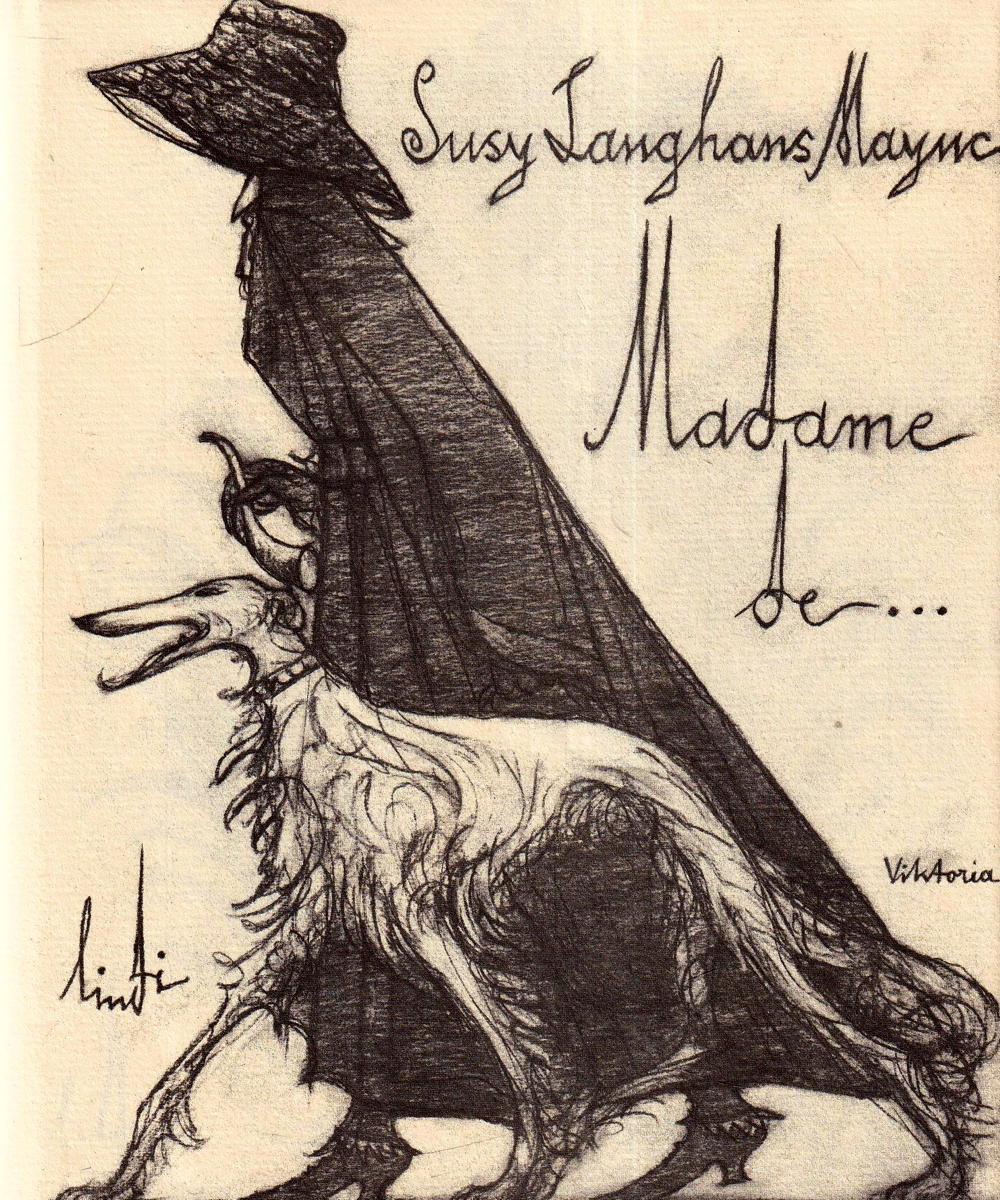 Susy Langhans Maync
Madame
de...
Viktoria
lindi